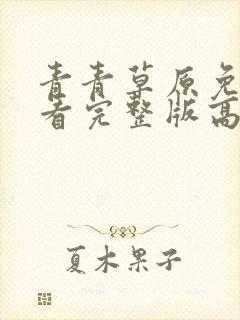 青青草原免
看完整版高
夏木果子